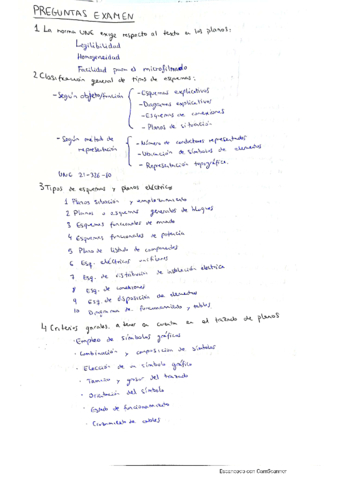 PREGUNTAS EXAMEN
1 La norma UNE exige respecto al texto en los planos:
Legilibilidad
Homogeneidad
Facilidad para el microfiltrado
2 Clasificación general de tipos de esquemas:
- Según objeto/función
- Esquemas explicativos
- Diagramas explicativos
- Esquemas de conexiones
- Planos de situación
- Según métod de representación
- Número de conductores representados
- Utilización de símbolos de elementos
- Representación topográfica.
UNE 21-326-80
3 Tipos de esquemas y planos eléctricos
1 Planos situación y emplazamiento
2 Planos o esquemas generales de bloques
3 Esquemas funcionales de mando
4 Esquemas funcionales de potencia
5 Plano de listado de componentes
6 Esq. eléctricos unifilares
7 Esq. de distribución de instalación electrica
8 Esq. de conexiones
9 Esq. de disposición de elementos
10 Diagrama de funcionamiento y tablas
4 Criterios gorales. a tener en cuenta en el trazado de planos
· Empleo de símbolos gráficos
· Combinación y composición de símbolos
· Elección de un símbolo gráfico
· Tamaño y grosor del trazado
· Orientación del símbolo
· Estado de funcionamiento
· de cables
Escaneado con CamScanner